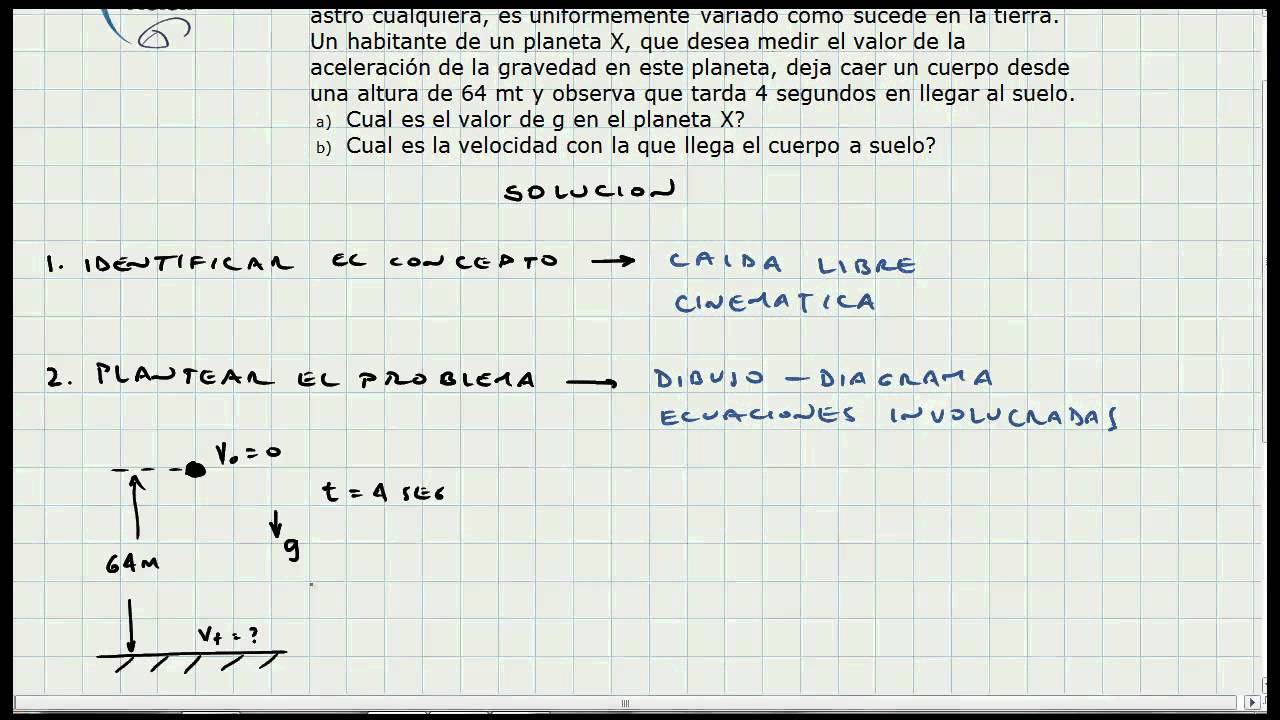 astro cualquiera, es uniformemente variado como sucede en la tierra.
Un habitante de un planeta X, que desea medir el valor de la
aceleración de la gravedad en este planeta, deja caer un cuerpo desde
una altura de 64 mt y observa que tarda 4 segundos en llegar al suelo.
a) Cual es el valor de g en el planeta X?
b) Cual es la velocidad con la que llega el cuerpo a suelo?
SOLUCION
1. IDENTIFICAR EL CONCEPTO → CAIDA LIBRE
CINEMATICA
2. PLANTEAR EL PROBLEMA → DIBUJO - DIAGRAMA
ECUACIONES INVOLUCRADAS
V₀ = 0
t = 4 SEG
g
64M
Vf = ?